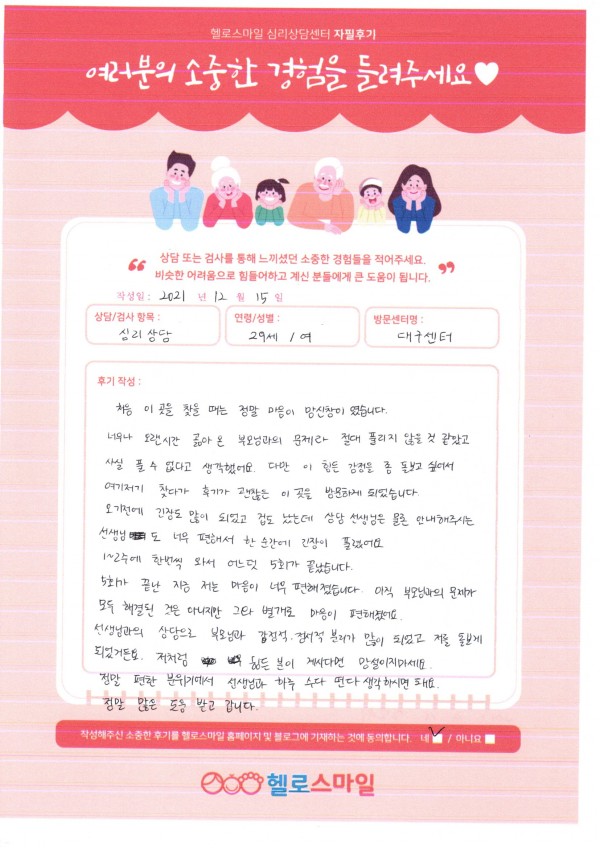 헬로스마일 심리상담센터 자필후기
여러분의 소중한 경험을 들려주세요
상담 또는 검사를 통해 느끼셨던 소중한 경험들을 적어주세요.
비슷한 어려움으로 힘들어하고 계신 분들에게 큰 도움이 됩니다.
작성일 : 2021 년 12 월 15 일
상담/검사 항목 : 심리상담
연령/성별 : 29세 / 여
방문센터명 : 대구센터
후기 작성 :
처음 이 곳을 찾을 때는 정말 마음이 만신창이 였습니다.
너무나 오랜시간 곪아 온 부모님과의 문제라 절대 풀리지 않을 것 같았고
사실 풀 수 없다고 생각했어요. 다만 이 힘든 감정을 좀 돌보고 싶어서
여기저기 찾다가 후기가 괜찮은 이 곳을 방문하게 되었습니다.
오기전에 긴장도 많이 되었고 겁도 났는데 상담 선생님은 물론 안내해주시는
선생님도 너무 편해서 한 순간에 긴장이 풀렸어요
1~2주에 한번씩 와서 어느덧 5회가 끝났습니다.
5회가 끝난 지금 저는 마음이 너무 편해졌습니다. 아직 부모님과의 문제가
모두 해결된 것은 아니지만 그와 별개로 마음이 편해졌어요.
선생님과의 상담으로 부모님과 감정적. 정서적 분리가 많이 되었고 저를 돌보게
되었거든요. 저처럼 힘든 분이 계시다면 망설이지마세요.
정말 편한 분위기에서 선생님과 하루 수다 떤다 생각하시면 돼요.
정말 많은 도움 받고 갑니다.
작성해주신 소중한 후기를 헬로스마일 홈페이지 및 블로그에 기재하는 것에 동의합니다. 네 / 아니요
헬로스마일